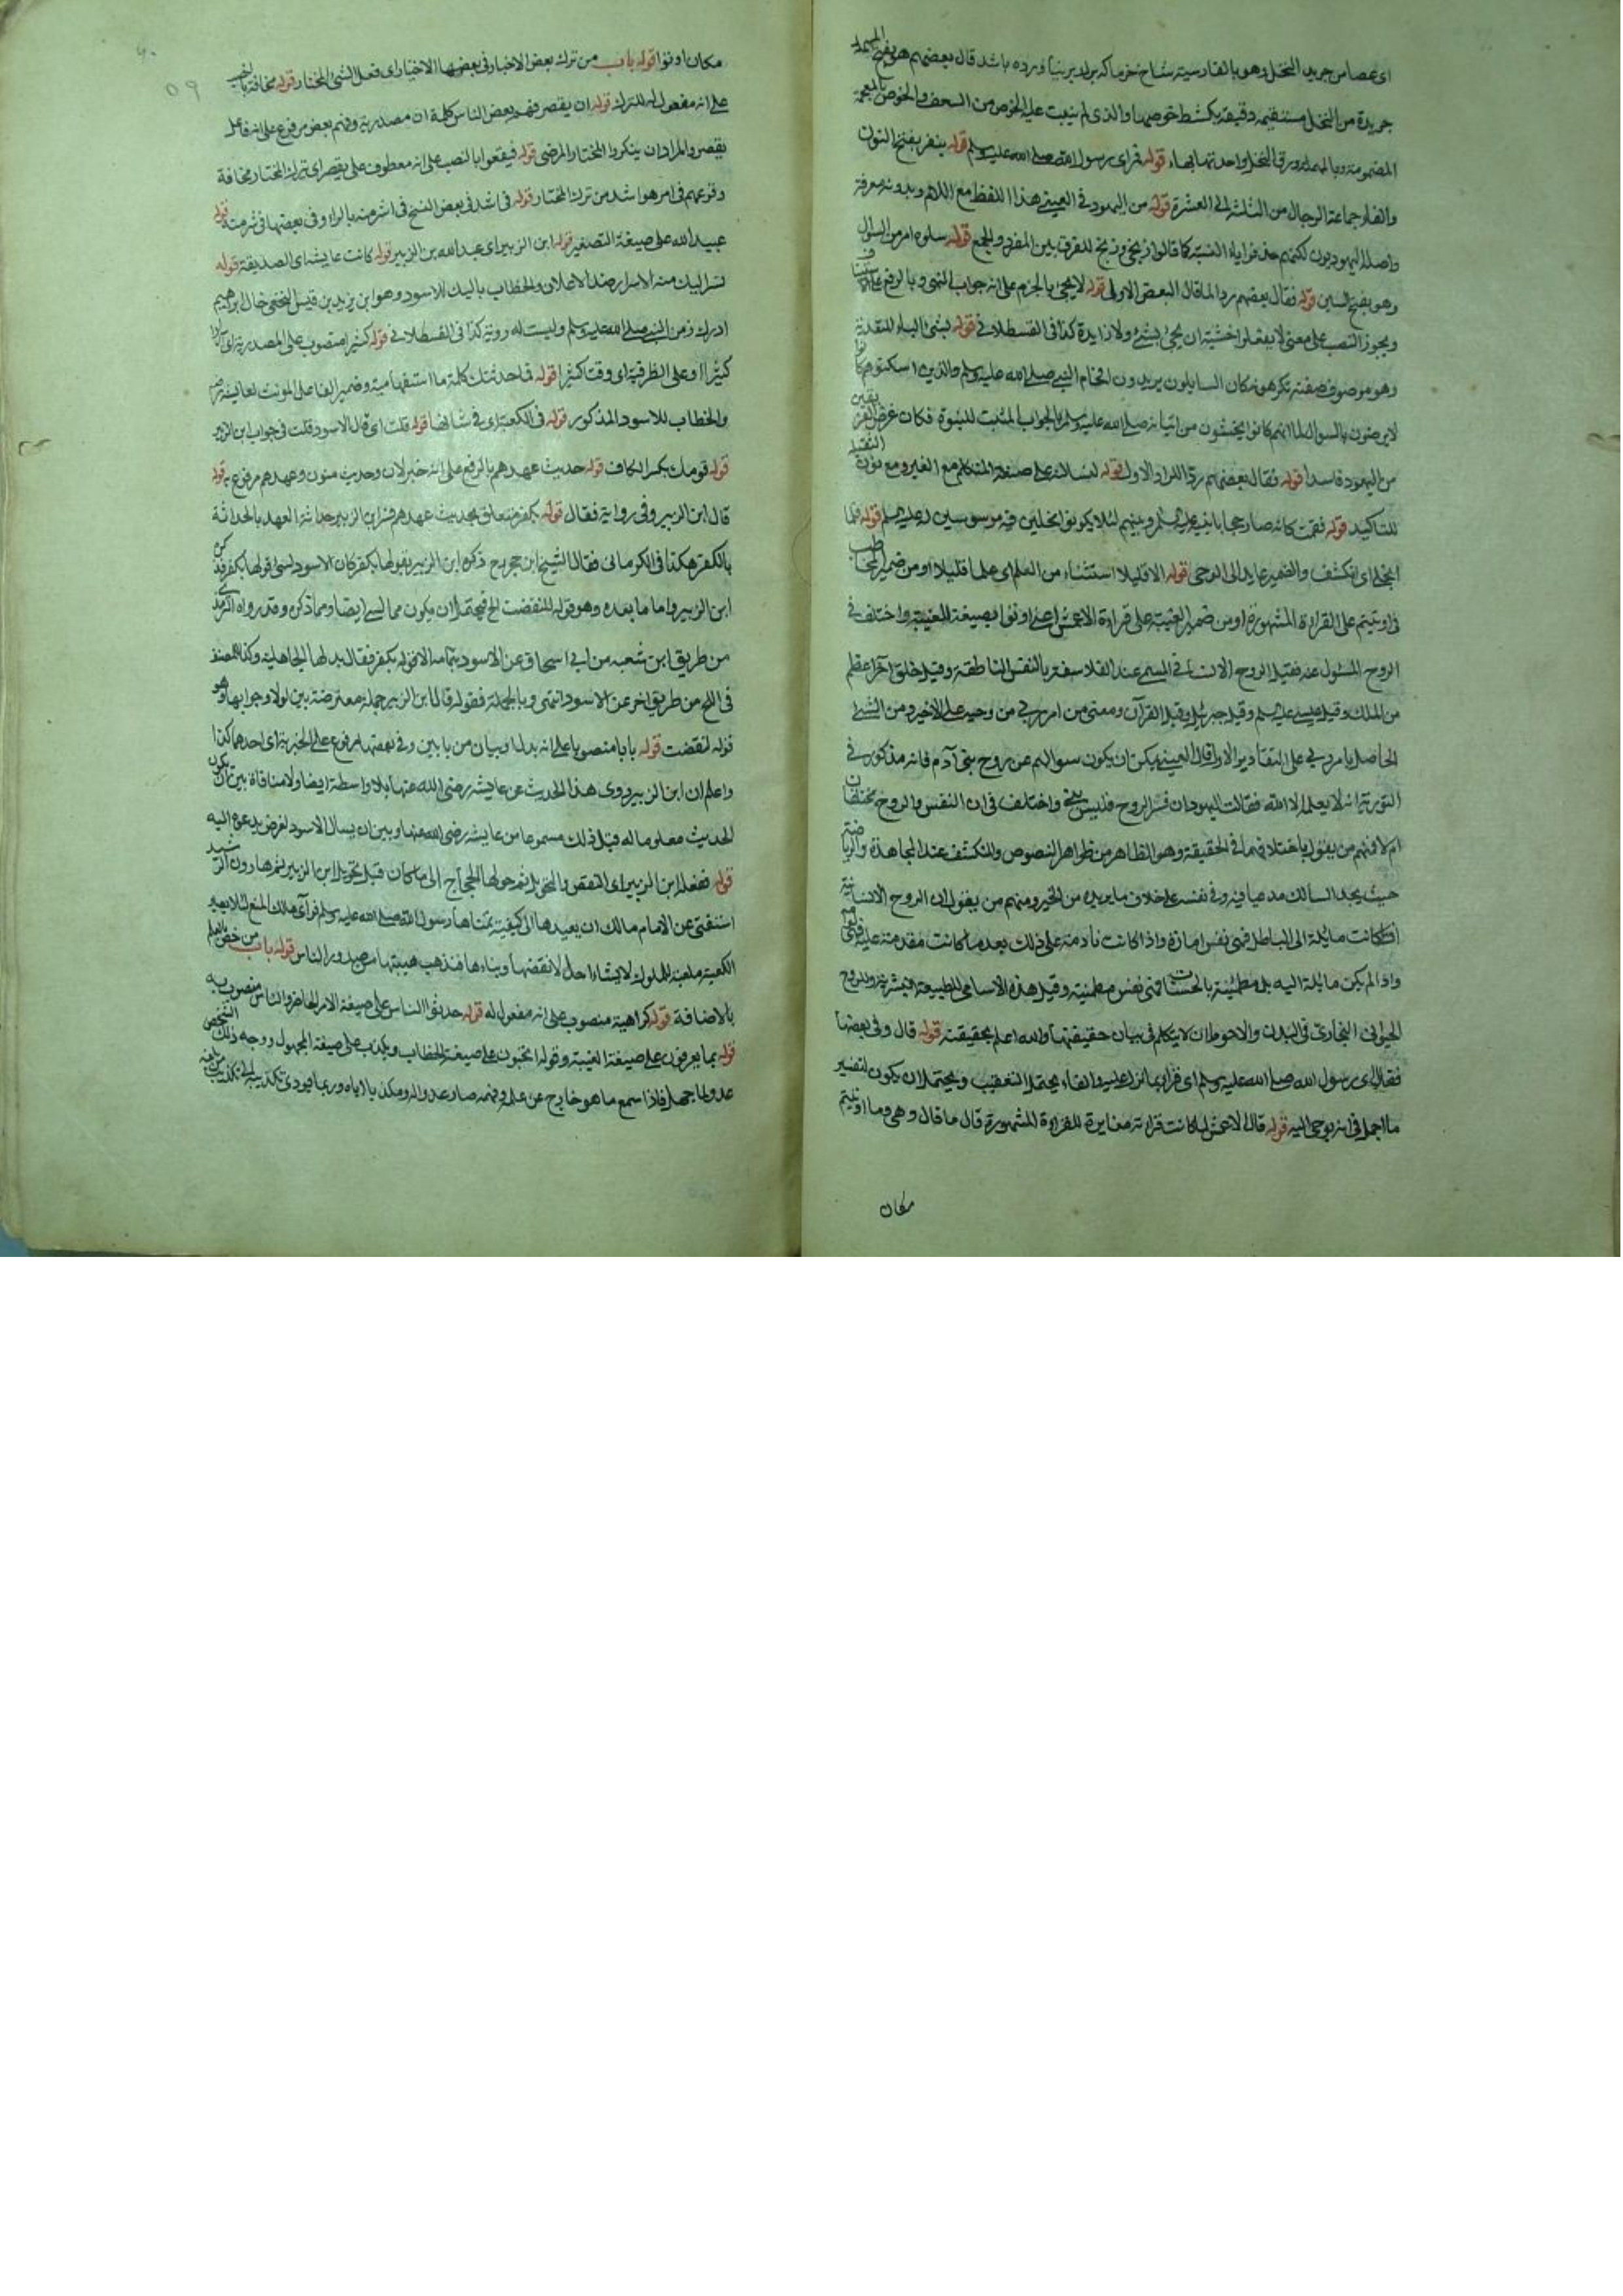 اى عصا من جريد النخل وهو بالفارسية شاخ خرما كه بر لدير بنا ورده باشد قال بعضهم هو بفتح المهملة
جريدة من النخل مستقيمة دقيقة يكشط خوصها والذى لم ينبت عليه الخوص من السعف والخوص بالمعجمة
المضمومة وبالمهملة ورق النخل واحدتها بهاء قوله فراى رسول الله صلى الله عليه وسلم قوله بنفر بفتح النون
والفاء جماعة الرجال من الثلثة الى العشرة قوله من اليهود فى العينى هذا اللفظ مع اللام وبدونه معرفة
واصله اليهوديون لكنهم حذفوا ياء النسبة كما قالوا زنجى وزنج للفرق بين المفرد والجمع قوله سلوه امر من السؤال
وهو بفتح السين قوله فقال بعضهم ردا لما قال البعض الاولى قوله لا يجئ بالجزم على انه جواب النهى وبالرفع على الاستيناف
ويجوز النصب على معنى لا يفعلوا خشية ان يجئ بشئ ولا زايدة كذا فى القسطلانى قوله بشئ الباء للتعدية
وهو موصوف صفته تكرهونه كان السايلون يريدون افحام النبى صلى الله عليه وسلم والذين اسكتوهم كانوا
لا يرضون بالسؤال لما انهم كانوا يخشون من اتيانه صلى الله عليه وسلم بالجواب المثبت للنبوة فكان غرض الفريقين
من اليهود فاسدا قوله فقال بعضهم ردا للراد الاول قوله لنسالنه على صيغة المتكلم مع الغير ومع نون الثقيلة
للتاكيد قوله فقمت كانه صار حجابا بينه عليه السلم وبينهم لئلا يكونوا مخلين قوله فلما
انجلى اى انكشف والضمير عايد الى الوحى قوله الا قليلا استثناء من العلم اى علما قليلا او من ضمير المخاطب
فى اوتيتم على القراءة المشهورة او من ضمير الغيبة على قراءة الاعمش اعنى اوتوا بصيغة الغيبة واختلف فى
الروح المسئول عنه فقيل الروح الانسانى المسمى عند الفلاسفة بالنفس الناطقة وقيل خلق اخر اعظم
من الملك وقيل عيسى عليه السلم وقيل جبريل وقيل القرآن ومعنى من امر ربى من وحيه على الاخير ومن الشئ
الحاصل بامر ربى على التقادير الاول قال العينى يمكن ان يكون سوالهم عن روح بنى آدم فانه مذكور فى
التورية انه لا يعلمه الا الله فقالت اليهود ان فسر الروح فليس بنبى واختلف فى ان النفس والروح مختلفان
ام لا فمنهم من يقول باختلافهما فى الحقيقة وهو الظاهر من ظواهر النصوص والمنكشف عند المجاهدة والرياضة
حيث يجد السالك مدعيا فيه وفى نفسه على خلاف ما يريده من الخير ومنهم من يقول ان الروح الانسانية
ان كانت مايلة الى الباطل فهى نفس امارة واذا كانت نادمة على ذلك بعد ما كانت مقدمة عليه فهى لوامة
واذا لم يكن مايلة اليه بل مطمئنة بالحسنات فهى نفس مطمئنة وقيل هذه الاسامى للطبيعة البشرية والروح
الحيوانى البخارى فى البدن والاحوط ان لا يتكلم فى بيان حقيقتها والله اعلم بحقيقته قوله قال وفى بعضها
فقال اى رسول الله صلى الله عليه وسلم اى قرأ بما انزل عليه والفاء يحتمل التعقيب ويحتمل ان يكون لتفسير
ما اجمل فى انه يوحى اليه قوله قال الاعمش لما كانت قراءته مغايرة للقراءة المشهورة قال ما قال وهى وما اوتيتم
مكان
٥٩
مكان اوتوا قوله باب من ترك بعض الاختيار فى بعضها الاخبار اى فعل الشئ المختار قوله مخافة بالنصب
على انه مفعول له للترك قوله ان يقصر فهم بعض الناس كلمة ان مصدرية وفهم بعض مرفوع على انه فاعل
يقصر والمراد ان ينكروا المختار المرضى قوله فيقعوا بالنصب على انه معطوف على يقصر اى ترك المختار مخافة
وقوعهم فى امر هو اشد من ترك المختار قوله فى اشد فى بعض النسخ فى اشر منه بالراء وفى بعضها فى شر منه قوله
عبيد الله على صيغة التصغير قوله ابن الزبير اى عبد الله بن الزبير قوله كانت عايشة اى الصديقة قوله
تسر اليك من الاسرار ضد الاعلان والخطاب باليك للاسود وهو ابن يزيد بن قيس النخعى خال ابراهيم
ادرك زمن النبى صلى الله عليه وسلم وليست له روية كذا فى القسطلانى قوله كثيرا منصوب على المصدرية اى اسرارا
كثيرا او على الظرفية اى وقت كثيرا قوله فما حدثتك كلمة ما استفهامية وضمير الفاعل المونث لعايشة رضـ
والخطاب للاسود المذكور قوله فى الكعبة اى فى شانها قوله قلت اى قال الاسود قلت فى جواب ابن الزبير
قوله قومك بكسر الكاف قوله حديث عهدهم بالرفع على انه خبر لان وحديث منون وعهدهم مرفوع به قوله
قال ابن الزبير وفى رواية فقال قوله بكفر متعلق بحديث عهدهم فسر ابن الزبير حداثة العهد بالحداثة
بالكفر هكذا فى الكرمانى فقال الشيخ ابن حجر رح ذكره ابن الزبير بقولها بكفر كان الاسود لنسى قولها بكفر فذكره
ابن الزبير واما ما بعده وهو قوله للنقضت الخ فيحتمل ان يكون مما نسى ايضا ومما ذكر وقد رواه الترمذى
من طريق ابن شعبة من ابى اسحاق عن الاسود بتمامه الا قوله بكفر فقال بدلها الجاهلية وكذا للمصنف
فى الحج من طريق اخر عن الاسود انتهى وبالجملة فقوله قال ابن الزبير جملة معترضة بين لولا وجوابها وهو
قوله لنقضت قوله بابا منصوبا على انه بدل وبيان من بابين وفى بعضها مرفوع على الخبرية اى احدهما كذا
واعلم ان ابن الزبير روى هذا الحديث عن عايشة رضى الله عنها بلا واسطة ايضا ولا منافاة بين ان يكون
الحديث معلوما له قبل ذلك مسموعا من عايشة رضى الله عنها وبين ان يسال الاسود لغرض يدعوه اليه
قوله ففعله ابن الزبير اى النقض والتحويل ثم حولها الحجاج الى ما كان قبل تحويل ابن الزبير ثم هارون الرشيد
استفتى عن الامام مالك ان يعيدها الى كيفية تمناها رسول الله صلى الله عليه وسلم فراى مالك المنع لئلا يصير
الكعبة ملعبة للملوك لا يشاء احد الا نقضها وبناءها فتذهب هيبتها من صدور الناس قوله باب من خص بالعلم
بالاضافة قوله كراهية منصوب على انه مفعول له قوله حدثوا الناس على صيغة الامر الحاضر والناس منصوب به
قوله بما يعرفون على صيغة الغيبة وقوله اتحبون على صيغة الخطاب ويكذب على صيغة المجهول ووجه ذلك الشخص
عدو لما جهل فاذا سمع ما هو خارج عن علمه وفهمه صار عدوا له ومكذبا اياه وربما فيودى